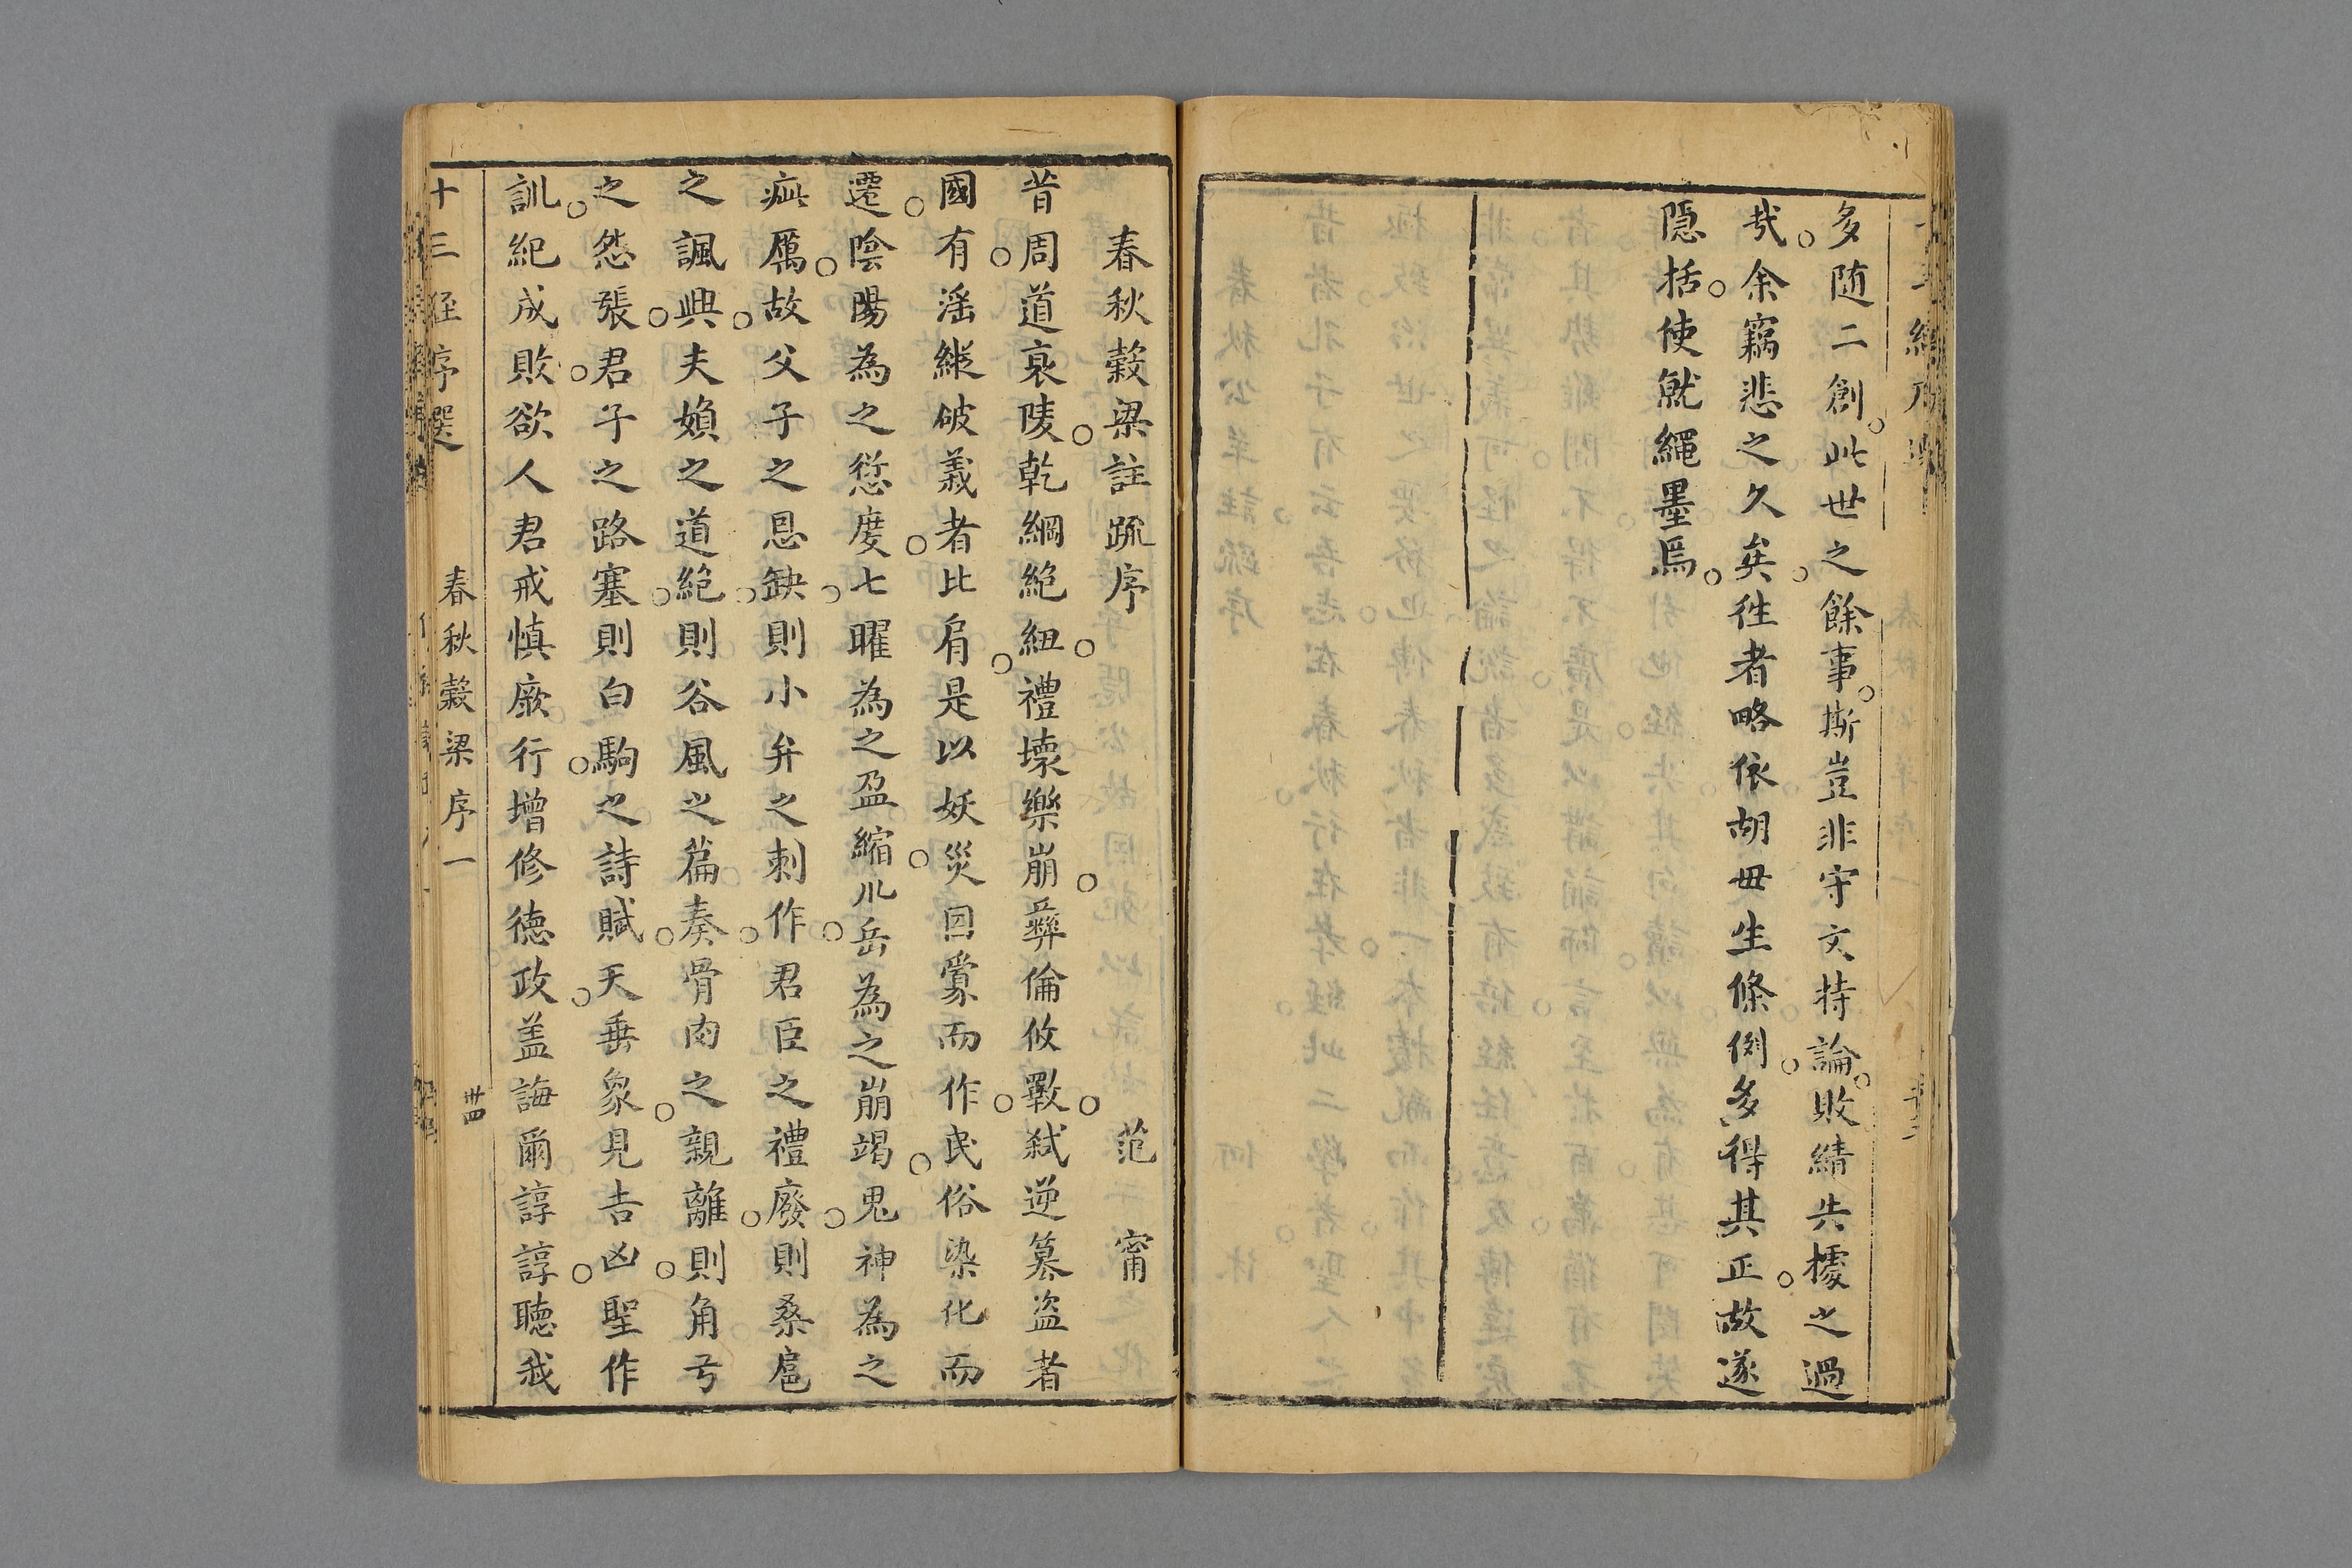 多随二創此世之餘事斯豈非守文持論敗績失據之過
哉余竊悲之久矣徃者略依胡毋生條例多得其正故遂
隱括使就繩墨焉
春秋穀梁註疏序
范甯
昔周道衰陵乾綱絕紐禮壞樂崩彝倫攸斁弑逆篡盜者
國有滛縱破義者比肩是以妖災因釁而作民俗染化而
遷陰陽為之愆度七曜為之盈縮川岳為之崩竭鬼神為之
疵厲故父子之恩缺則小弁之刺作君臣之禮廢則桑扈
之諷興夫婦之道絕則谷風之篇奏骨肉之親離則角弓
之怨張君子之路塞則白駒之詩賦天垂象見吉凶聖作
訓紀成敗欲人君戒慎厥行增修德政盖誨爾諄諄聽我
十三經序選
春秋穀梁序一
卅四